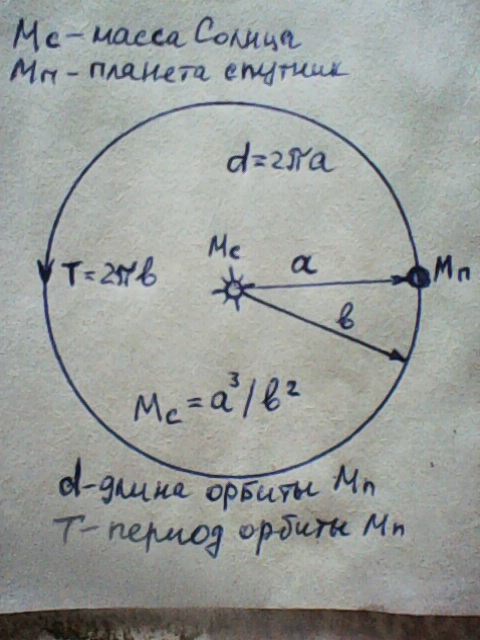 Мс - масса Солнца
Мп - планета спутник
d = 2πa
Мс
a
Мп
T = 2πв
в
Мс = a³/в²
d - длина орбиты Мп
T - период орбиты Мп